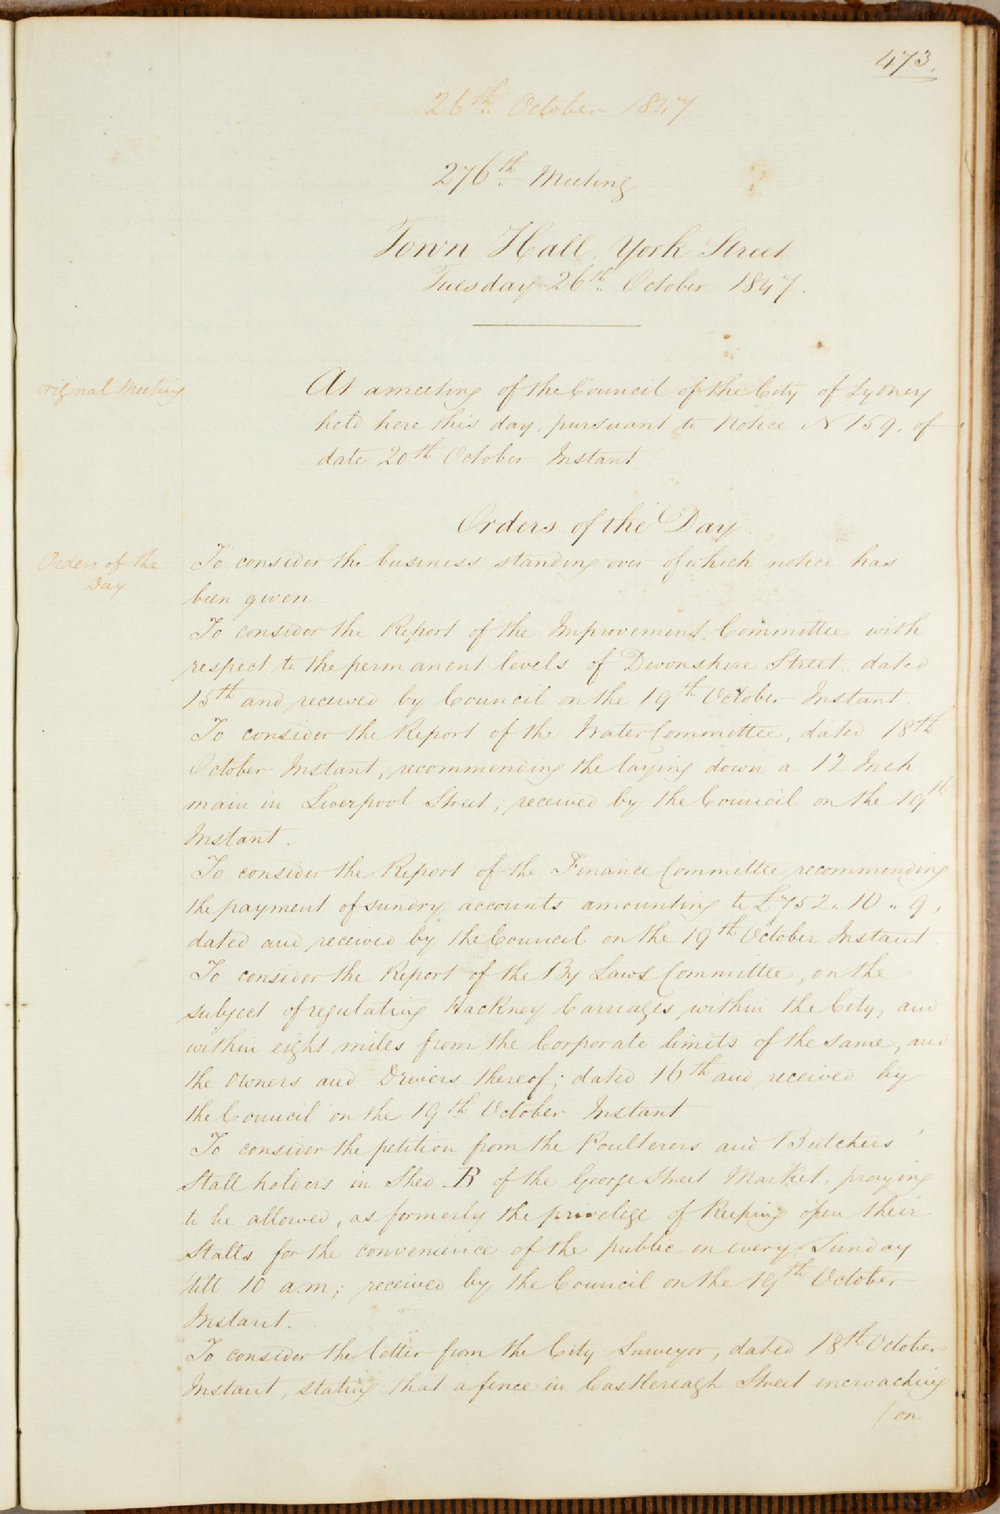 473.
26th October 1847
276th Meeting
Town Hall, York Street
Tuesday 26th October 1847.
Original Meeting
At a meeting of the Council of the City of Sydney
held here this day, pursuant to Notice No 159, of
date 20th October Instant.
Orders of the Day.
Orders of the
Day
To consider the business standing over of which notice has
been given
To consider the Report of the Improvement Committee with
respect to the permanent levels of Devonshire Street dated
15th and received by Council on the 19th October Instant
To consider the Report of the Water Committee, dated 18th
October Instant, recommending the laying down a 12 Inch
main in Liverpool Street, received by the Council on the 19th
Instant.
To consider the Report of the Finance Committee recommending
the payment of sundry accounts amounting to £752.. 10 .. 9,
dated and received by the Council on the 19th October Instant.
To consider the Report of the By Laws Committee, on the
subject of regulating Hackney Carriages within the City, and
within eight miles from the Corporate limits of the same, and
the Owners and Drivers thereof; dated 16th and received by
the Council on the 19th October Instant
To consider the petition from the Poulterers and Butchers'
Stall holders in Shed B of the George Street Market, praying
to be allowed, as formerly the privelege of Keeping open their
Stalls for the convenience of the public on every Sunday
till 10 a.m; received by the Council on the 19th October
Instant.
To consider the letter from the City Surveyor, dated 18th October
Instant, stating that a fence in Castlereagh Street encroaching
/ on